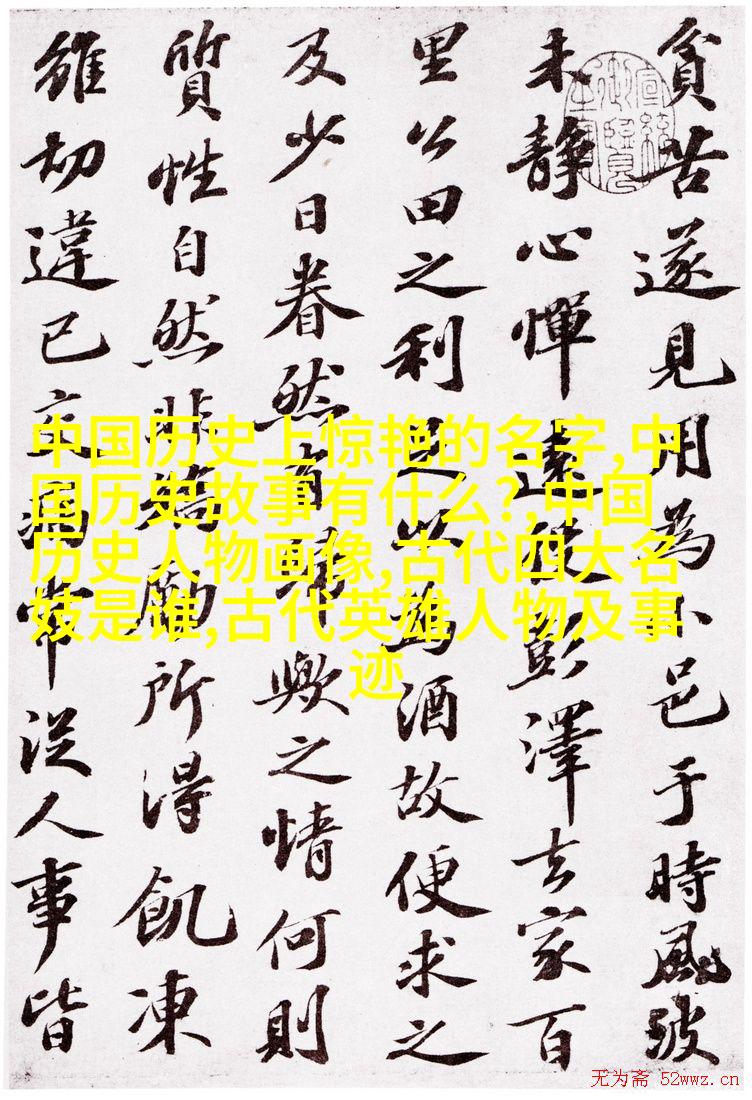 貧苦遂見用為小邑于時風波
未靜心憚遠役彭澤去家百
里公田之利足以為酒故便求之
及少日眷然有歸歟之情何則
質性自然非矯勵所得飢凍
雖切違己交病嘗從人事皆
中国历史上惊艳的名字,中
国历史故事有什么?,中国
历史人物画像,古代四大名
妓是谁,古代英雄人物及事
迹
无为斋 52wwz.cn